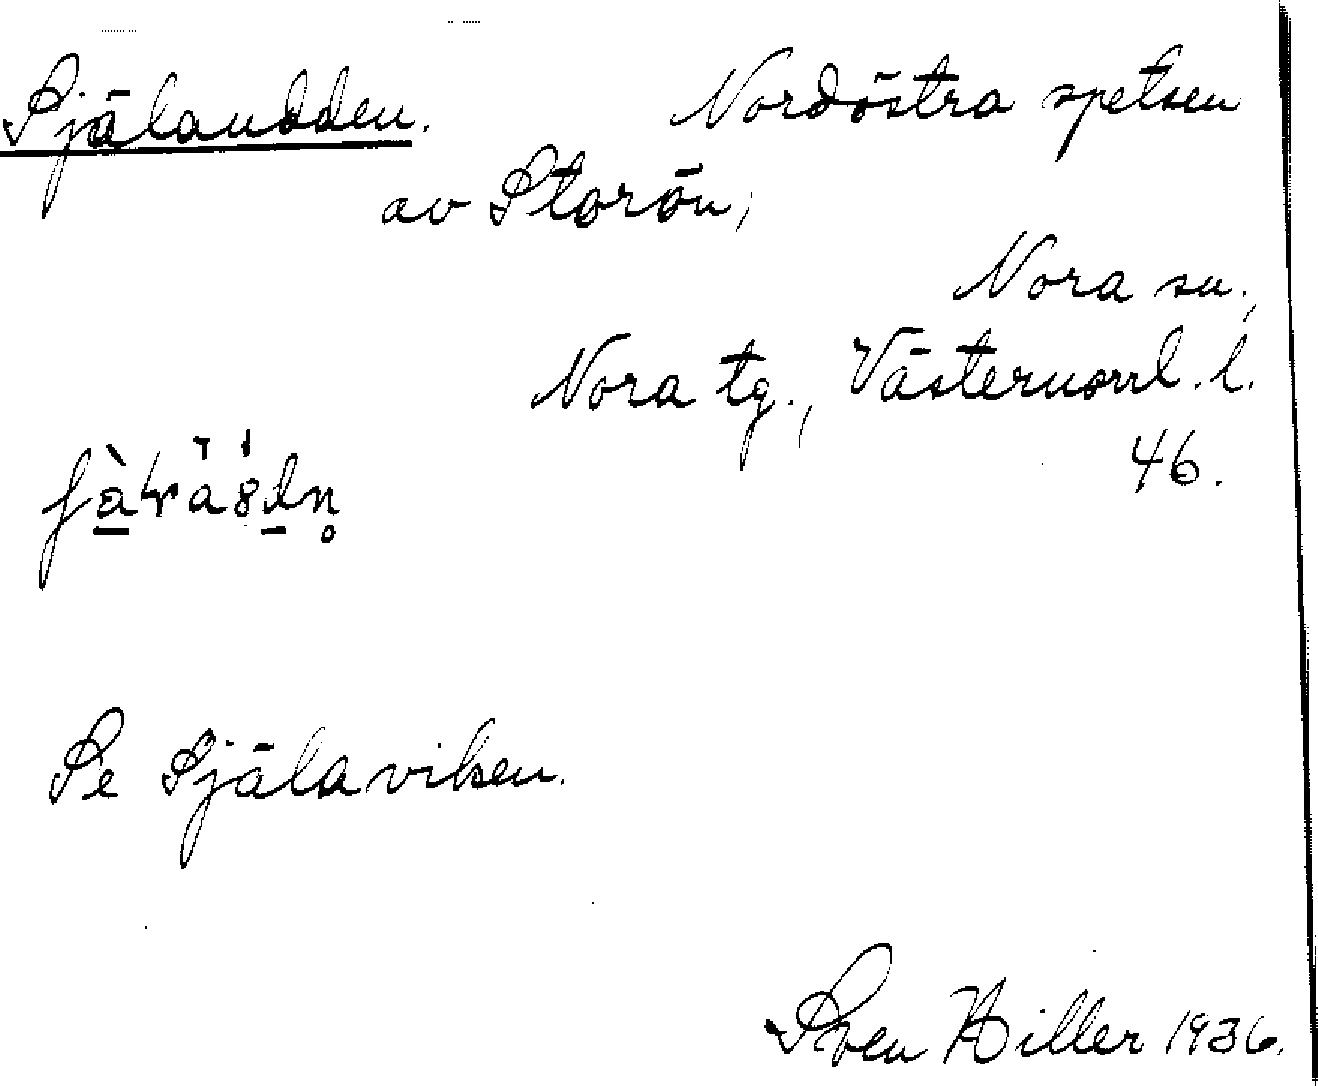 Själaudden. Nordöstra spetsen
av Storön,
Nora sn.,
Nora tg., Västernorrl. l.
46.
Se Själaviken.
Sven Hiller 1936.